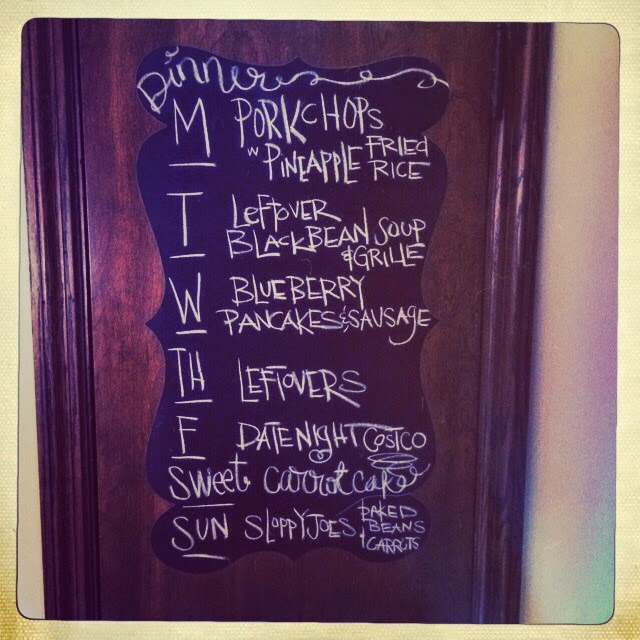 Dinner
M PORKCHOPS
W PINEAPPLE FRIED RICE
T LEFTOVER
BLACKBEAN SOUP
& GRILLE
W BLUEBERRY
PANCAKES & SAUSAGE
TH LEFTOVERS
F DATE NIGHT COSTCO
Sweet Carrot cake
SUN SLOPPY JOES BAKED
BEANS
CARROTS